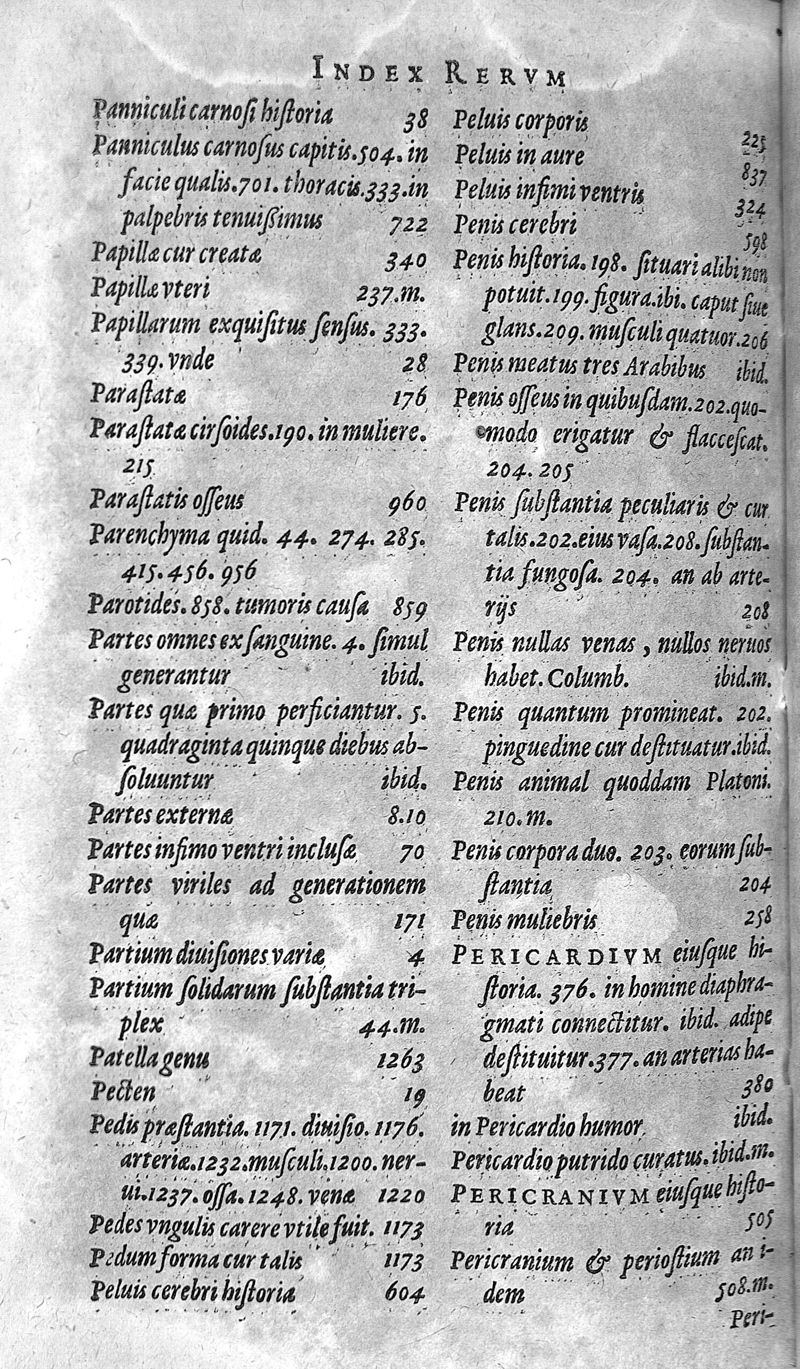 INDEX RERVM
Panniculi carnosi historia 38
Panniculus carnosus capitis.504. in
facie qualis.701. thoracis.333.in
palpebris tenuißimus 722
Papillæ cur creatæ 340
Papillæ vteri 237.m.
Papillarum exquisitus sensus. 333.
339. vnde 28
Parastatæ 176
Parastatæ cirsoides.190. in muliere.
215
Parastatis osseus 960
Parenchyma quid. 44. 274. 285.
415. 456. 956
Parotides. 858. tumoris causa 859
Partes omnes ex sanguine. 4. simul
generantur ibid.
Partes quæ primo perficiantur. 5.
quadraginta quinque diebus ab-
soluuntur ibid.
Partes externæ 8.10
Partes infimo ventri inclusæ 70
Partes viriles ad generationem
quæ 171
Partium diuisiones variæ 4
Partium solidarum substantia tri-
plex 44.m.
Patella genu 1263
Pecten 19
Pedis præstantia. 1171. diuisio. 1176.
arteriæ.1232.musculi.1200. ner-
ui.1237. ossa. 1248. venæ 1220
Pedes vngulis carere vtile fuit. 1173
Pedum forma cur talis 1173
Peluis cerebri historia 604
Peluis corporis 225
Peluis in aure 837
Peluis infimi ventris 324
Penis cerebri 598
Penis historia. 198. situari alibi non
potuit.199. figura.ibi. caput siue
glans.209. musculi quatuor.206
Penis meatus tres Arabibus ibid.
Penis osseus in quibusdam.202.quo-
modo erigatur & flaccescat.
204. 205
Penis substantia peculiaris & cur
talis.202.eius vasa.208. substan-
tia fungosa. 204. an ab arte-
rijs 208
Penis nullas venas, nullos neruos
habet. Columb. ibid.m.
Penis quantum promineat. 202.
pinguedine cur destituatur.ibid.
Penis animal quoddam Platoni.
210.m.
Penis corpora duo. 203. eorum sub-
stantia 204
Penis muliebris 258
PERICARDIVM eiusque hi-
storia. 376. in homine diaphra-
gmati connectitur. ibid. adipe
destituitur.377. an arterias ha-
beat 380
in Pericardio humor ibid.
Pericardio putrido curatus.ibid.m.
PERICRANIVM eiusque histo-
ria 505
Pericranium & periostium an i-
dem 508.m.
Peri-